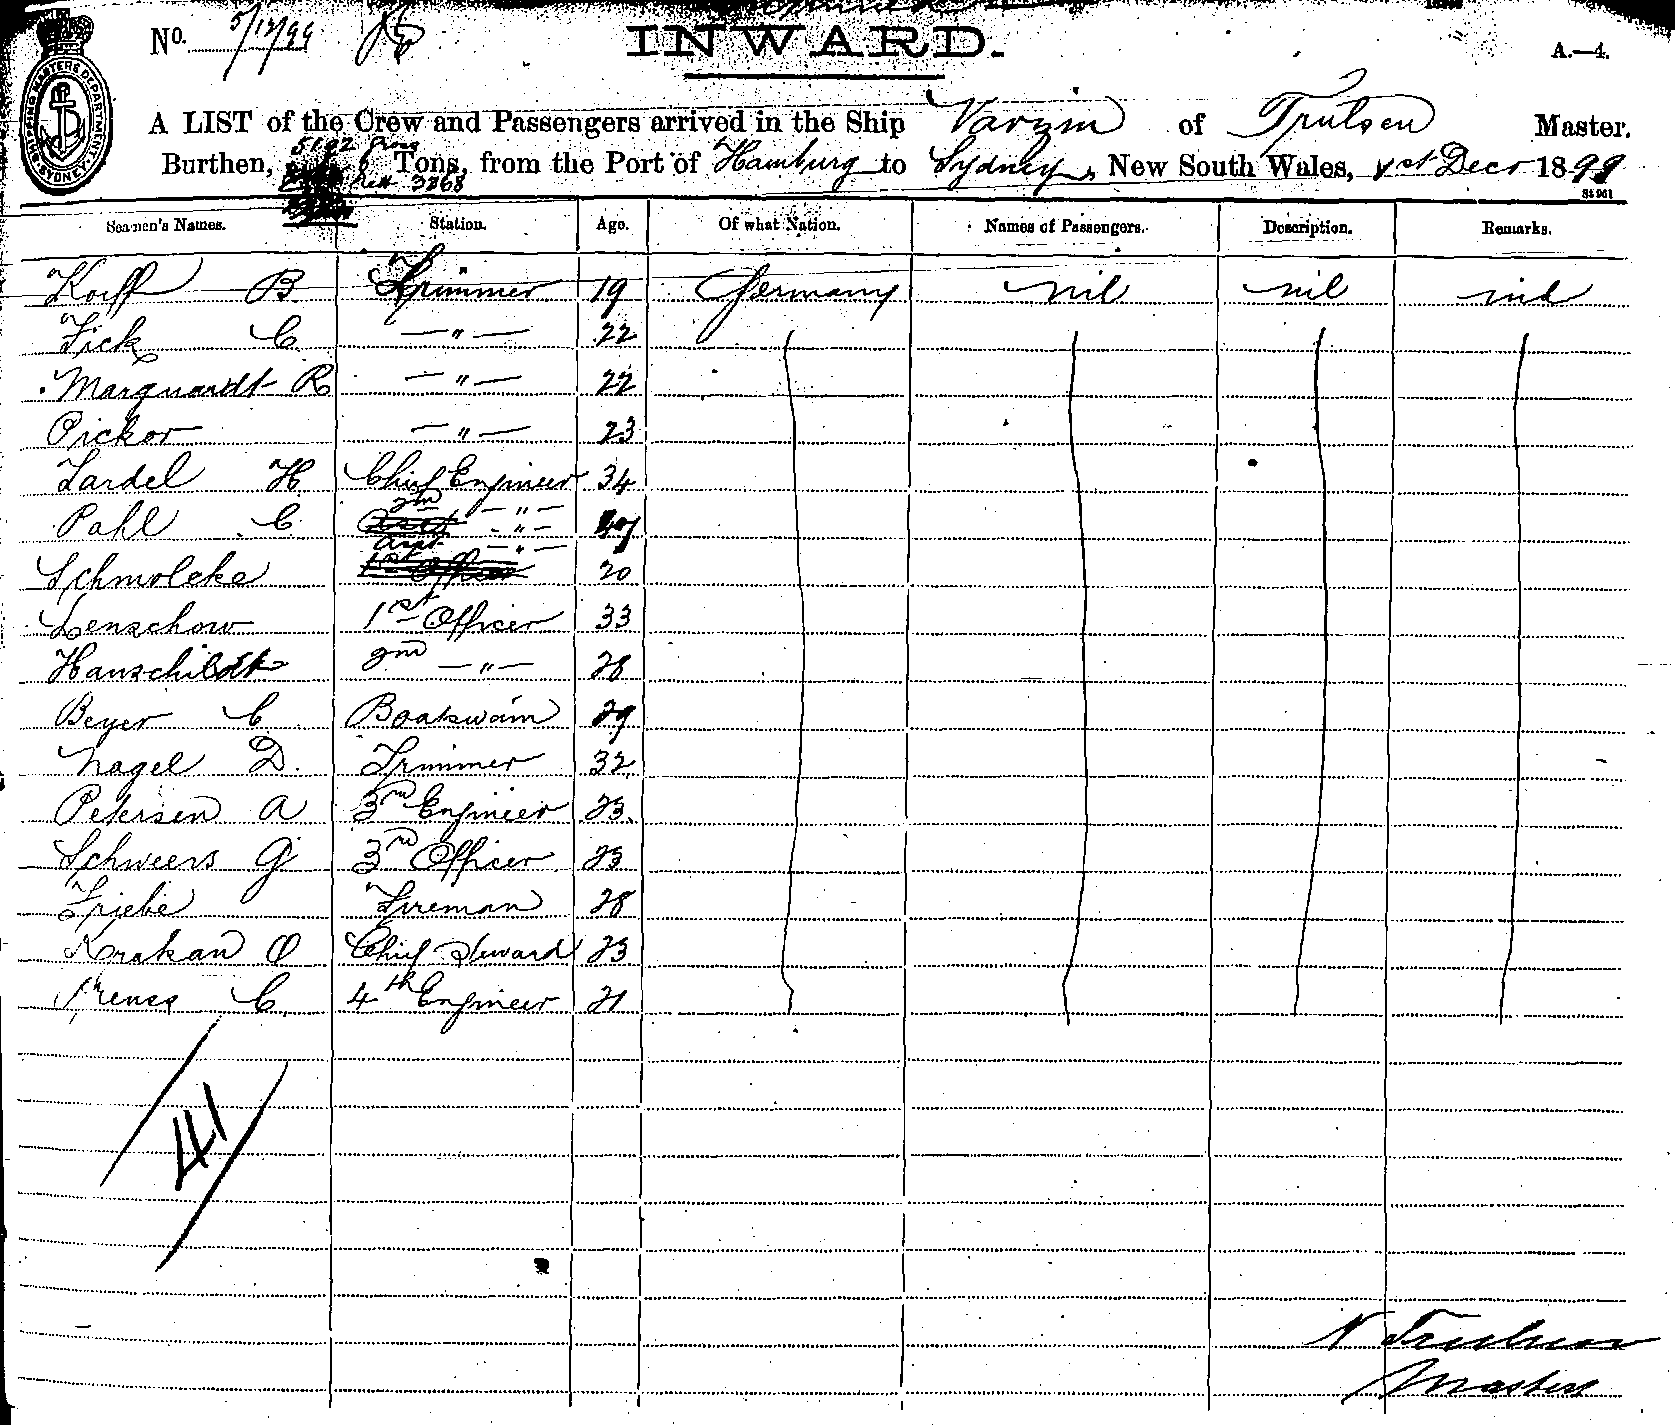 No. 5/12/99
INWARD.
A.—4.
SHIPPING MASTERS DEPARTMENT SYDNEY
A LIST of the Crew and Passengers arrived in the Ship Varzin of Trulsen Master.
5192 gross
Burthen, Tons, from the Port of Hamburg to Sydney, New South Wales, 1st Decr 1899
nett 3268
Seamen's Names. Station. Age. Of what Nation. Names of Passengers. Description. Remarks.
Korff B. Trimmer 19 Germany nil nil nil
Fick C. — " — 22
Marquardt R — " — 22
Pickor — " — 23
Zardel H. Chief Engineer 34
Pahl C. 2nd — " — 27
Schmolcke Asst — " — 20
Lenschow 1st Officer 33
Hanschildt 2nd — " — 28
Beyer C. Boatswain 29
Nagel D. Trimmer 32
Petersen A 3rd Engineer 23
Schweers G 3rd Officer 23
Friebe Fireman 28
Krakan O Chief Steward 23
C. 4th Engineer 21
41
N Trulsen
Master